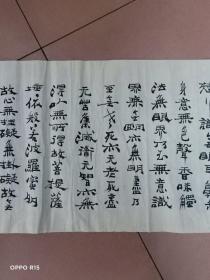 身意無色聲香味觸
法無眼界乃至無意識
界無無明亦無無明盡乃
至無老死亦无老死盡
无苦集滅道无智亦無
得以無所得故菩提薩
埵依般若波羅蜜多
故心無掛礙無掛礙故
OPPO R15